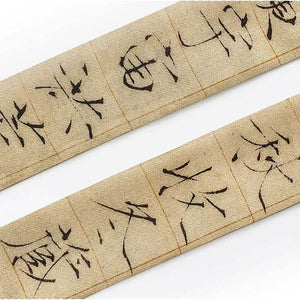 宇宙洪荒
秋收冬藏